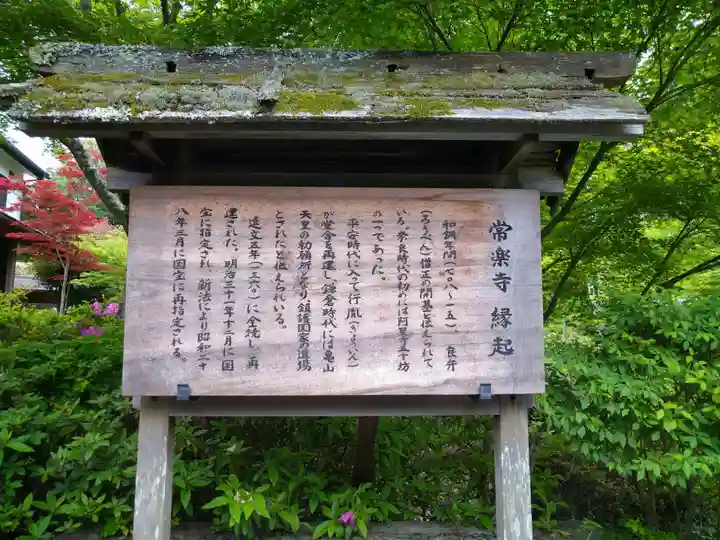 常楽寺 縁起
和銅年間(七〇八〜一五) 良弁
(ろうべん)僧正の開基と伝えられて
いる。奈良時代の初めには阿星寺五千坊
の一つであった。
平安時代に入って行胤(ぎょういん)
が堂舎を再建し鎌倉時代には亀山
天皇の勅願所となり鎮護国家の道場
とされたと伝えられいる。
延文五年(一三六〇)に全焼し、再
建された。明治三十一年十二月に国
宝に指定され、新法により昭和二十
八年三月に国宝に再指定される。